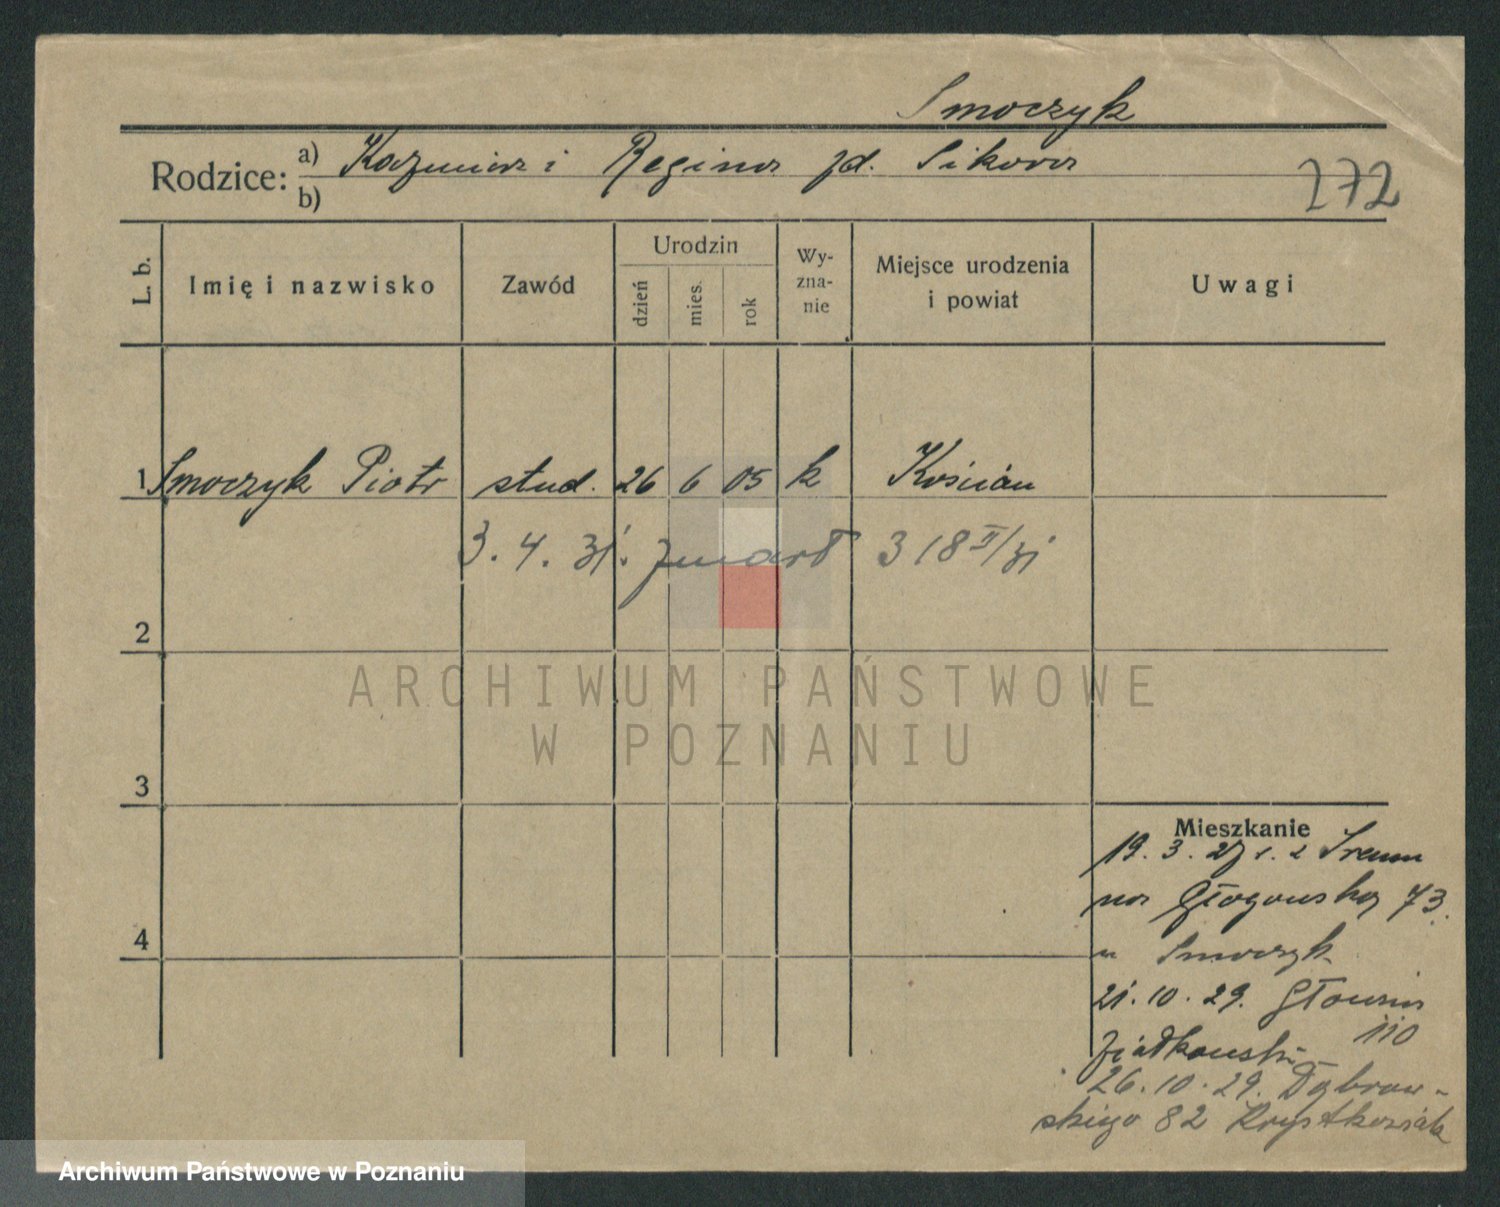 Smoczyk
Rodzice: a) Kazmierz i Regina zd. Sikora
b)
272
L. b. Imię i nazwisko Zawód Urodzin dzień mies. rok Wy-zna-nie Miejsce urodzenia i powiat Uwagi
1 Smoczyk Piotr stud. 26 6 05 k Kościan
3. 4. 31. zmarł 318 II/31
2
ARCHIWUM PAŃSTWOWE
W POZNANIU
3
Mieszkanie
19. 3. 27 z Śremu
na Głogowską 73.
4
u Smoczyk
21. 10. 29. Główna
110
Ziółkowski
26. 10. 29. Dąbrow-
skiego 82 Krystkowiak
Archiwum Państwowe w Poznaniu